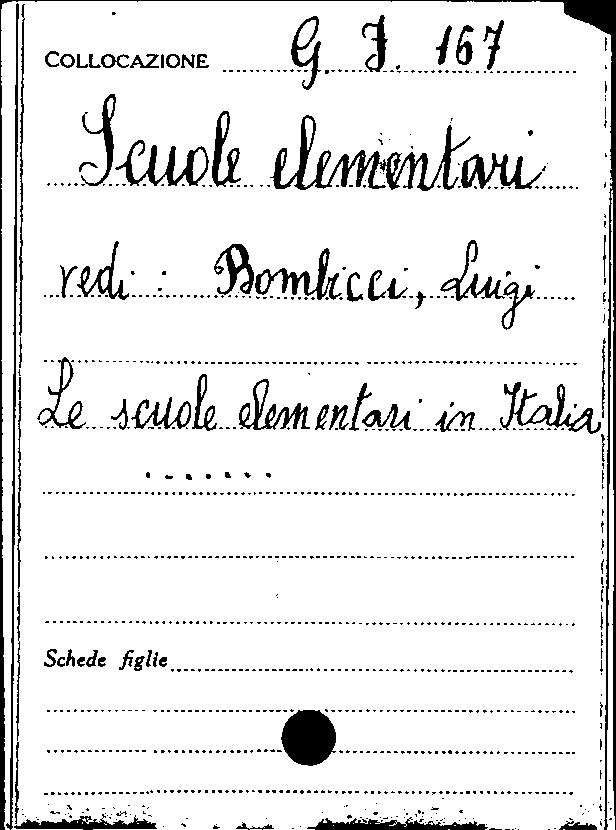 COLLOCAZIONE G. I. 167
Scuole elementari
vedi : Bombicci, Luigi
Le scuole elementari in Italia
.......
Schede figlie